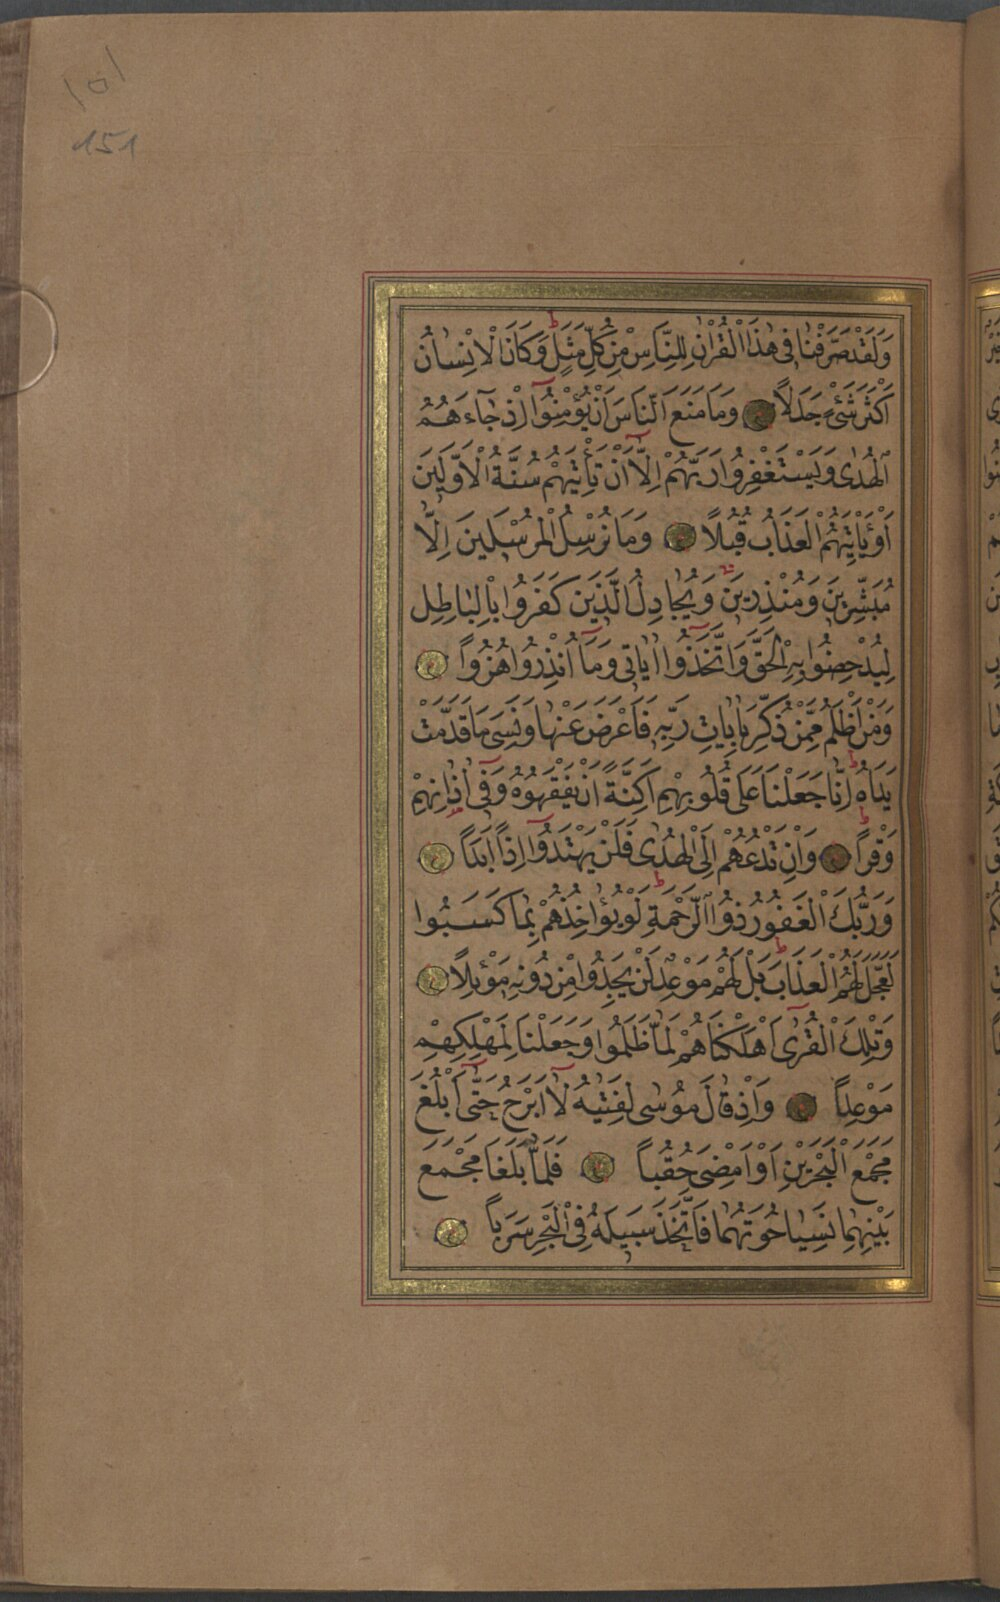 ١٥١
151
وَلَقَدْ صَرَّفْنَا فِي هٰذَا الْقُرْاٰنِ لِلنَّاسِ مِنْ كُلِّ مَثَلٍ ط وَكَانَ الْاِنْسَانُ
اَكْثَرَ شَيْءٍ جَدَلاً وَمَا مَنَعَ النَّاسَ اَنْ يُؤْمِنُوٓا اِذْ جَٓاءَهُمُ
الْهُدٰى وَيَسْتَغْفِرُوا رَبَّهُمْ اِلَّٓا اَنْ تَأْتِيَهُمْ سُنَّةُ الْاَوَّلِينَ
اَوْ يَأْتِيَهُمُ الْعَذَابُ قُبُلاً وَمَا نُرْسِلُ الْمُرْسَلِينَ اِلَّا
مُبَشِّرِينَ وَمُنْذِرِينَ وَيُجَادِلُ الَّذِينَ كَفَرُوا بِالْبَاطِلِ
لِيُدْحِضُوا بِهِ الْحَقَّ وَاتَّخَذُٓوا اٰيَاتِي وَمَٓا اُنْذِرُوا هُزُوًا
وَمَنْ اَظْلَمُ مِمَّنْ ذُكِّرَ بِاٰيَاتِ رَبِّهِ فَاَعْرَضَ عَنْهَا وَنَسِيَ مَا قَدَّمَتْ
يَدَاهُ ط اِنَّا جَعَلْنَا عَلٰى قُلُوبِهِمْ اَكِنَّةً اَنْ يَفْقَهُوهُ وَفِٓي اٰذَانِهِمْ
وَقْرًا ط وَاِنْ تَدْعُهُمْ اِلَى الْهُدٰى فَلَنْ يَهْتَدُٓوا اِذًا اَبَدًا
وَرَبُّكَ الْغَفُورُ ذُو الرَّحْمَةِ ط لَوْ يُؤَاخِذُهُمْ بِمَا كَسَبُوا
لَعَجَّلَ لَهُمُ الْعَذَابَ ط بَلْ لَهُمْ مَوْعِدٌ لَنْ يَجِدُوا مِنْ دُونِهِ مَوْئِلاً
وَتِلْكَ الْقُرٰٓى اَهْلَكْنَاهُمْ لَمَّا ظَلَمُوا وَجَعَلْنَا لِمَهْلِكِهِمْ
مَوْعِدًا وَاِذْ قَالَ مُوسٰى لِفَتٰيهُ لَٓا اَبْرَحُ حَتّٰٓى اَبْلُغَ
مَجْمَعَ الْبَحْرَيْنِ اَوْ اَمْضِيَ حُقُبًا فَلَمَّا بَلَغَا مَجْمَعَ
بَيْنِهِمَا نَسِيَا حُوتَهُمَا فَاتَّخَذَ سَبِيلَهُ فِي الْبَحْرِ سَرَبًا